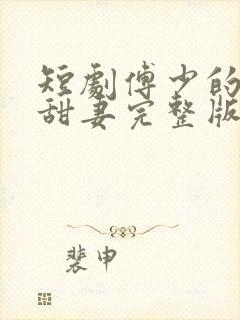 短劇傅少的
甜妻完整版
裴申